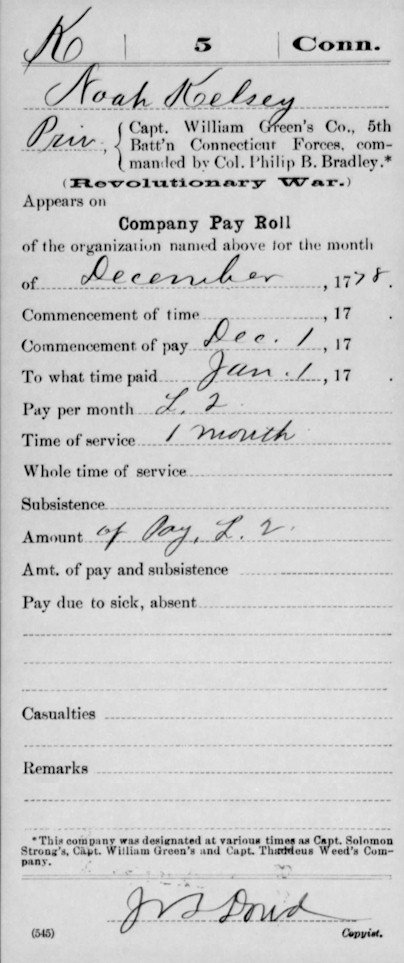 K | 5 | Conn.
Noah Kelsey
Priv, { Capt. William Green's Co., 5th
Batt'n Connecticut Forces, com-
manded by Col. Philip B. Bradley.*
(Revolutionary War.)
Appears on
Company Pay Roll
of the organization named above for the month
of December, 1778.
Commencement of time, 17 .
Commencement of pay Dec. 1, 17 .
To what time paid Jan. 1, 17 .
Pay per month L. 2
Time of service 1 month
Whole time of service
Subsistence
Amount of Pay, L. 2.
Amt. of pay and subsistence
Pay due to sick, absent
Casualties
Remarks
*This company was designated at various times as Capt. Solomon
Strong's, Capt. William Green's and Capt. Thaddeus Weed's Com-
pany.
Dowd
(545) Copyist.